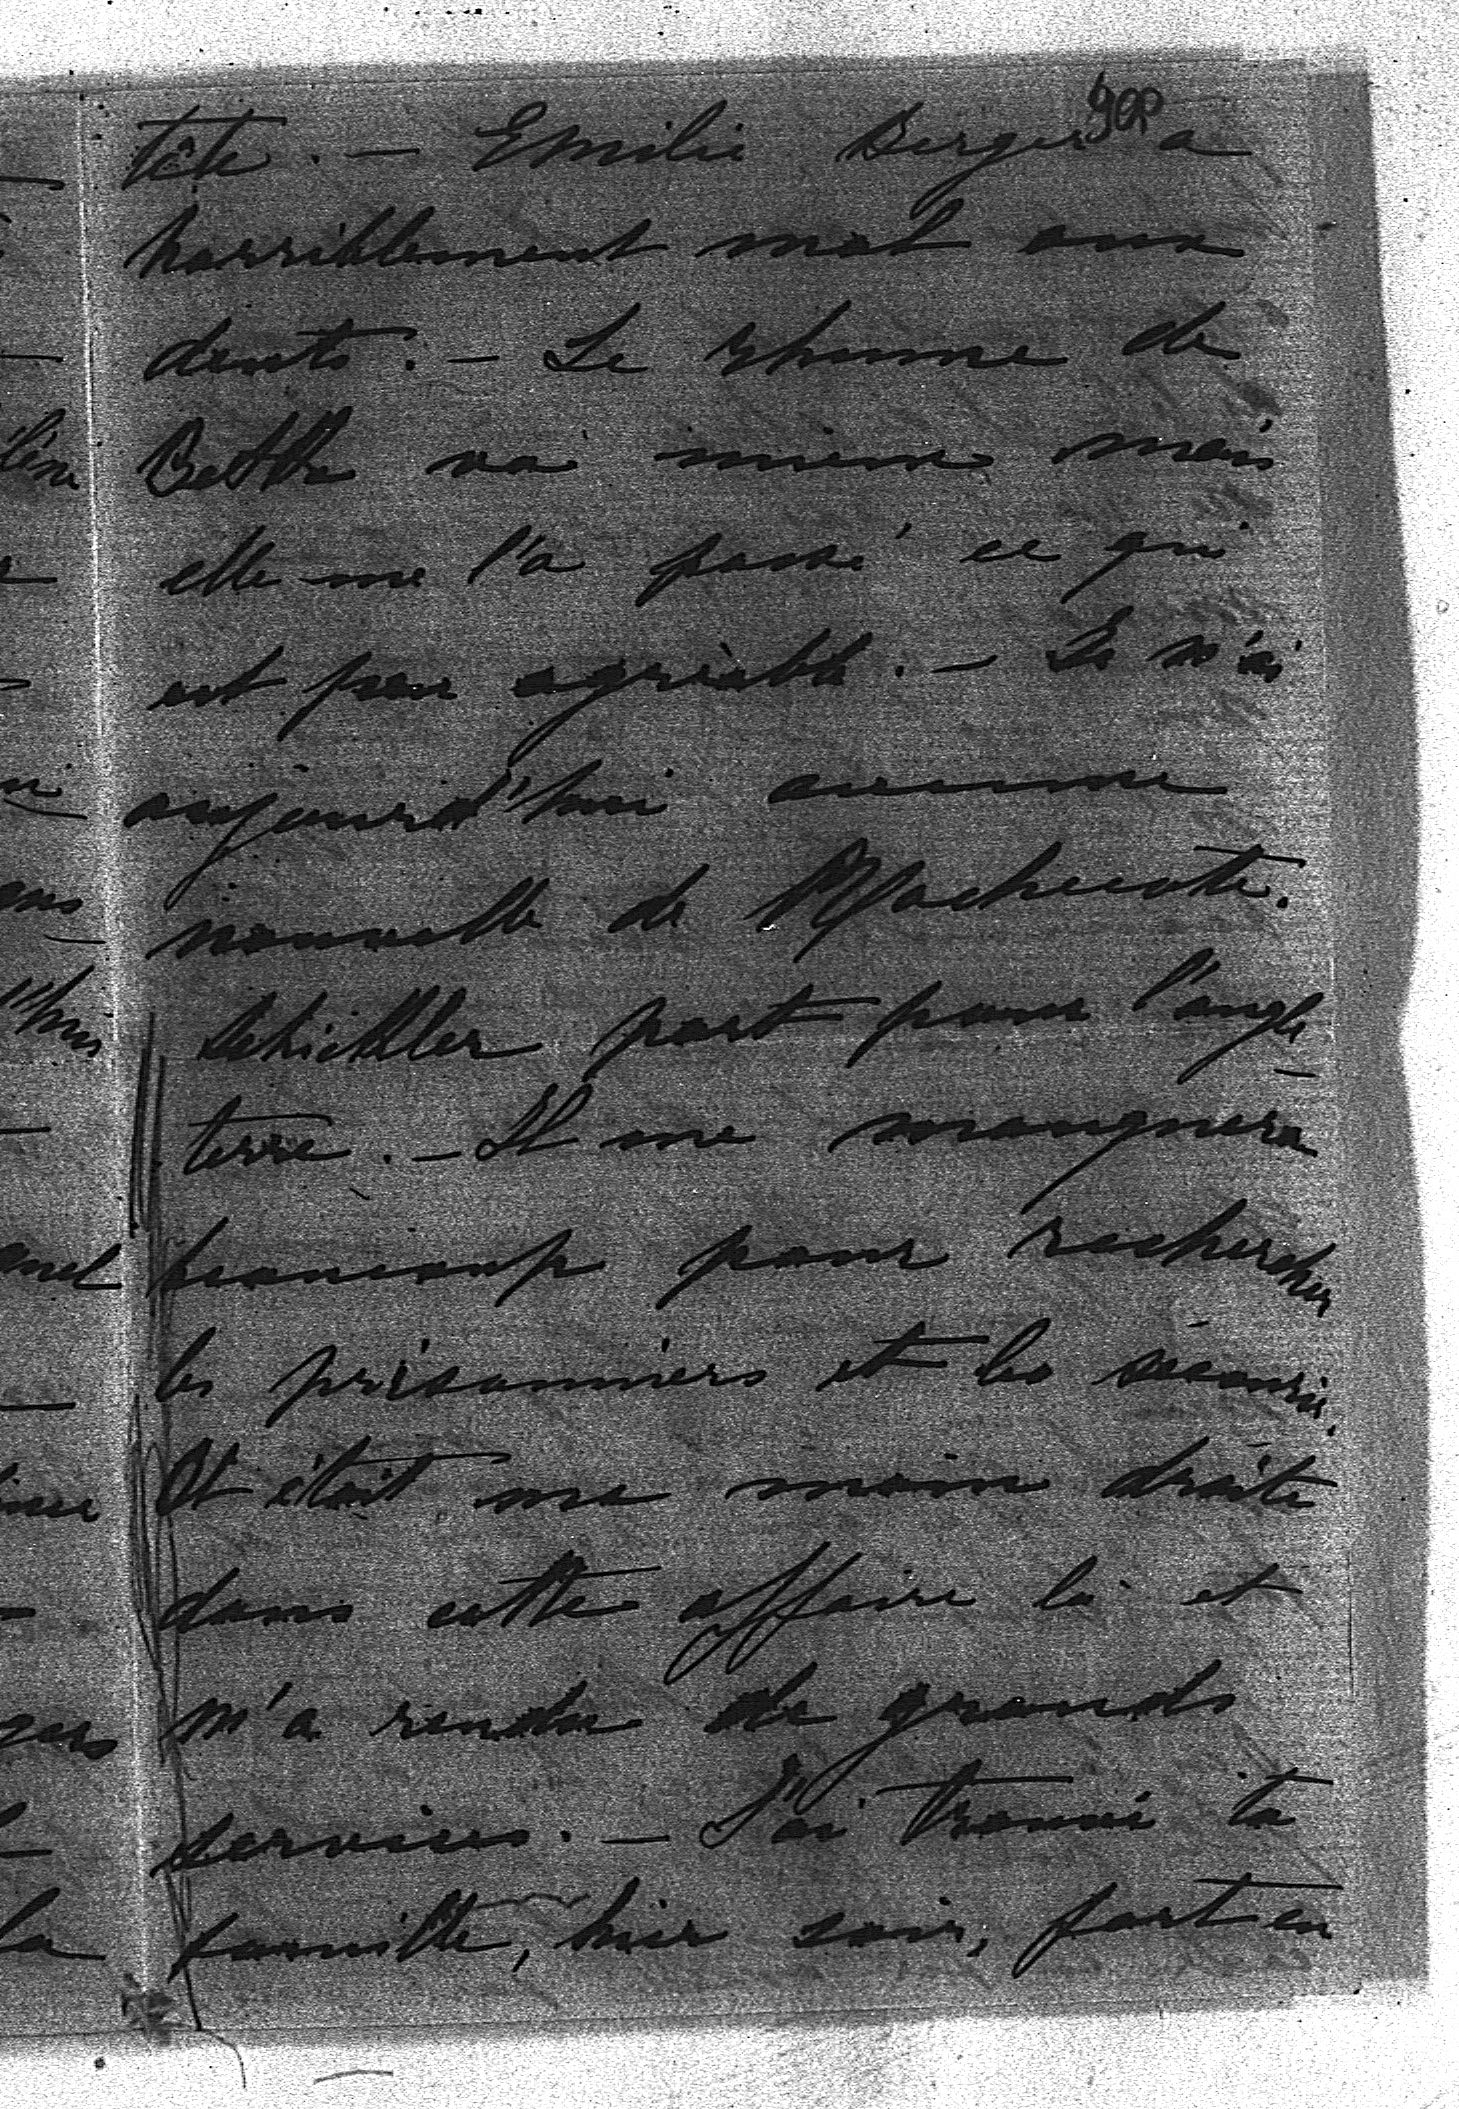 tête. — Emilie Berger a
horriblement mal aux
dents. — Le rhume de
Berthe va mieux mais
elle me l'a passé ce qui
est peu agréable. — Je n'ai
aujourd'hui aucune
nouvelle de
Schickler part pour l'angle-
terre. — Il me manquera
beaucoup pour rechercher
les prisonniers et les secourir.
Il était ma main droite
dans cette affaire là et
m'a rendu de grands
services. — J'ai trouvé ta
famille, hier soir, fort en